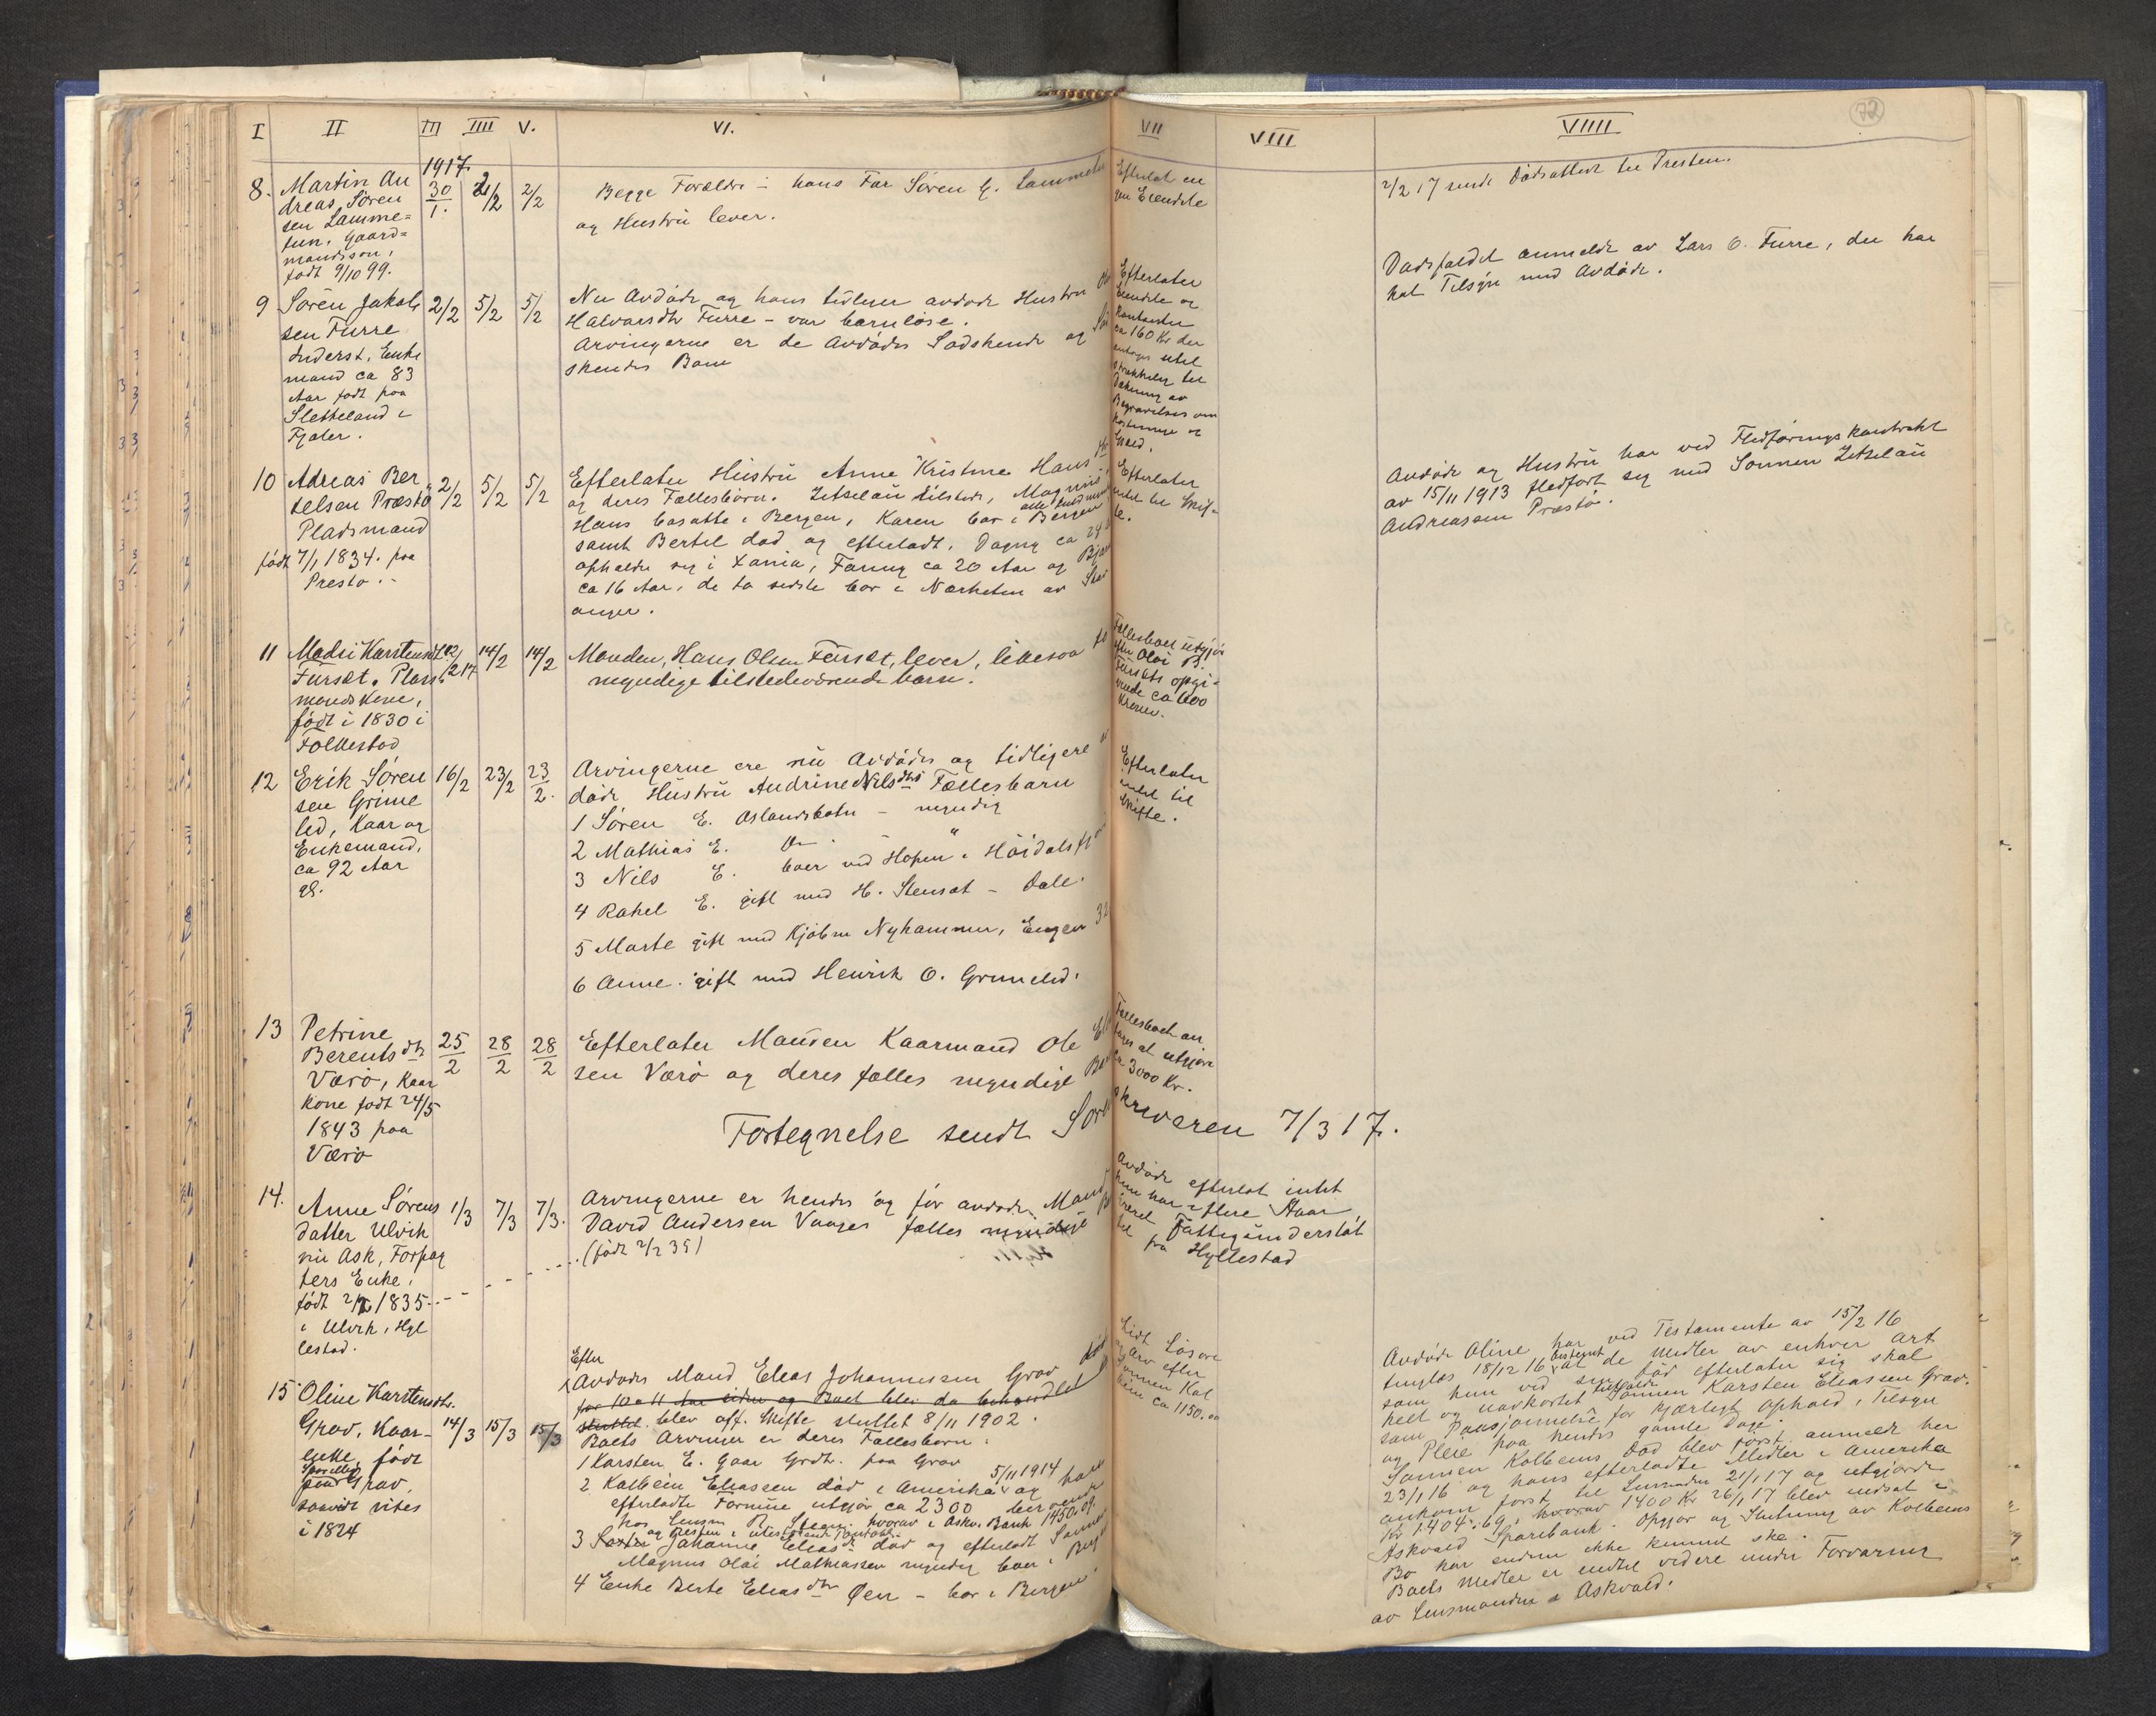 I II III IIII V. VI. VII VIII VIIII 72
1917.
8. Martin An
dreas Søren
sen Lamme=
tun. Gaard=
mandssøn,
født 9/10 99.
30/1. 2/2 2/2
Begge Forældre - hans Far Søren G. Lammetu
og Hustru lever.
Efterlot en
2/2 17 sendt Dødsattest til Presten.
9 Søren Jakob
sen Furre
Inderst, Enke
mand ca 83
Aar født paa
Sletteland i
Fjaler.
2/2 5/2 5/2
Nu Avdøde og hans tidligere avdøde Hustru
Halvarsdtr Furre - var barnløse.
Arvingerne er de Avdødes Sødskende og
skendes Barn
Efterlater
Eiendele og
Kontanter
ca 160 Kr der
antages util
strækkelig til
Dækning av
Begravelsesom
kostninger og
Gjæld.
Dødsfaldet anmeldt av Lars O. Furre, der har
hat Tilsyn med Avdøde.
10 Adreas Ber
telsen Præstø
Pladsmand
født 7/1 1834. paa
Prestø.
2/2 5/2 5/2
Efterlater Hustru Anne Kristine Hans
og deres Fællesbørn. Zetselau tilsteds, Magnus,
Hans bosatte i Bergen, Karen bor i Bergen
samt Bertel død og efterladt. Dagny ca 24
opholder sig i Xania, Fanny ca 20 Aar og
ca 16 Aar, de to sidste bor i Nærheten av Stav
anger.
Efterlater
intet til Skif-
te.
Avdøde og Hustru har ved Flodføringskontrakt
av 15/11 1913 fledført sig med Sønnen Zetselau
Andreassen Præstø.
11 Madsi Karstensdtr
Furset, Plas
mandskone,
født i 1830 i
Folkestad
12/2 17 14/2 14/2
Manden, Hans Olsen Furset, lever, likesaa
myndige tilstedeværende barn.
Fællesboet utgjør
efter Olai B.
Fursets opgi-
vende ca 600
Kroner.
12 Erik Søren
sen Grime
lid, Kaar og
Enkemand,
ca 92 Aar
gl.
16/2 23/2 23/2.
Arvingerne ere nu Avdødes og tidligere
døde Hustru Andrine Nilsdtrs Fællesbarn
1 Søren E. Oslandsbotn - myndig
2 Mathias E. Do - "
3 Nils E. boer ved Hopen i Høidalsfj
4 Rakel E. gift med H. Stensæt - Dale.
5 Marte gift med Kjøbm Nyhammer, Engen 32
6 Anne. gift med Henrik O. Grimelid.
Efterlater
intet til
Skifte.
13 Petrine
Berentsdtr
Værø, Kaar
kone født 24/5
1843 paa
Værø
25/2 28/2 28/2
Efterlater Manden Kaarmand Ole
sen Værø og deres fælles myndige
Fællesboet an
tages at utgjøre
ca 3000 Kr.
Fortegnelse sendt Sorenskriveren 7/3 17.
14. Anne Sørens
datter Ulvik
nu Ask, Forpag
ters Enke,
født 2/2 1835
i Ulvik, Hyl
lestad.
1/3 7/3 7/3.
Arvingerne er hendes og før avdøde Mand
David Andersen Vaages fælles myndige
(født 2/2 35)
Avdøde efterlot intet
hun har i flere Aar
Fattigunderstøt
fra Hyllestad
15 Oline Karstensdtr.
Grov, Kaar-
enke, født
paa Grov,
saavidt vites
i 1824
14/3 15/3 15/3
Efter
Avdødes Mand Elias Johannessen Grov
for 10 a 11 Aar siden og Boet blev da behandlet
sluttet. blev off. Skifte sluttet 8/11 1902.
Boets Arvinger er deres Fællesbørn.
1 Karsten E. Gaar Grdbr. paa Grov
2 Kolbein Eliassen død i Amerika 5/11 1914 og hans
efterladte Formue utgjør ca 2300 beroende
hos Lensm R. Steen, hvorav i Askv. Bank 1450.09.
og Resten i utestaaende
3 Johanne Eliasdtr død og efterladt Sønnen
Magnus Olai Mathiassen myndig boer i Berg
4 Enke Berte Eliasdtr Øen - bor i Bergen.
Lidt Løsøre
og Arv efter
Sønnen Kol
bein ca 1150.00
Avdøde Oline har ved Testamente av 15/2 16
tinglæs 18/12 16 bestemt at de Midler av enhver Art
som hun ved sin Død efterlater sig skal
helt og uavkortet tilfalde Sønnen Karsten Eliassen Grov.
som Paaskjønnelse for kjærligt Ophold, Tilsyn
og Pleie paa hendes gamle Dage.
Sønnen Kolbeins Død blev først anmeldt her
23/1 16 og hans efterladte Midler i Amerika
ankom først til Lensmanden 21/1 17 og utgjorde
Kr 1404.69, hvorav 1400 Kr 26/1 17 blev indsat i
Askvold Sparebank. Opgjør og Slutning av Kolbeins
Bo har endnu ikke kunnet ske.
Boets Midler er indtil videre under Forvaring
av Lensmanden i Askvold.